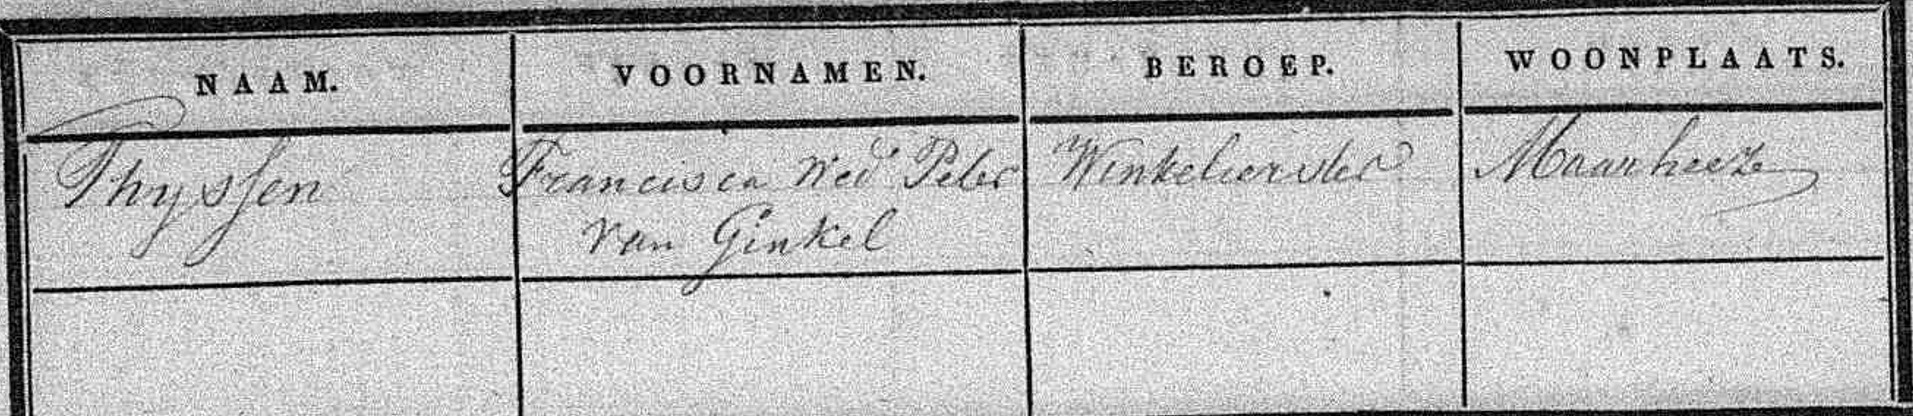 NAAM. VOORNAMEN. BEROEP. WOONPLAATS.
Thyssen Francisca Wed Peter Winkelierster Maarheeze
van Ginkel